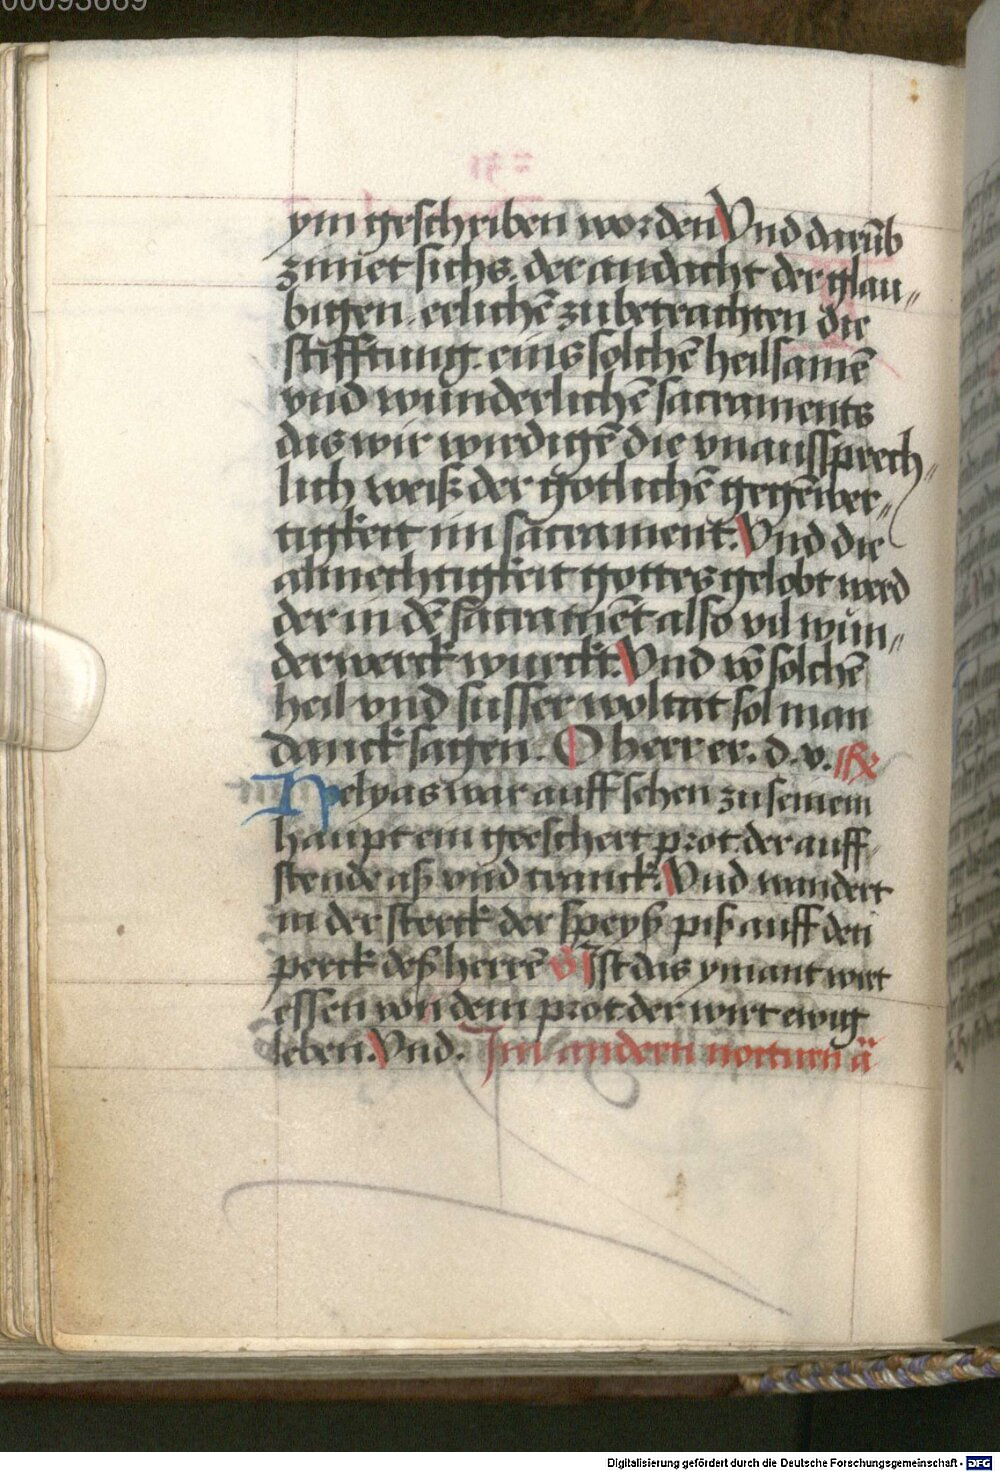 00093669
ym geschriben worden Vnd darūb
zimet sichs. der andacht der glau〃
bigen. erlichē zubetrachten die
stifftung. eins solchē heilsamē
vnd wunderlichē sacraments
das wir wirdigē die vnaussprech〃
lich weiß der gotlichē gegēwer〃
tigkeit im sacrament. Vnd die
almechtigkeit gottes gelobt werd
der in dē sacramēt also vil wun〃
derwerck wurckt. Vnd vō solchē
heil vnd susser woltat sol man
danck sagen. O herr er. d. v. R
Helyas war auff sehen zu seinem
haupt ein geeschert prot. der auff
stende aß vnd tranck. Vnd wandert
in der sterck der speyß piß auff den
perck deß herrē V Ist das ymant wirt
essen von dem prot. der wirt ewig
leben. Vnd. Im andern nocturn ā
Digitalisierung gefördert durch die Deutsche Forschungsgemeinschaft - DFG